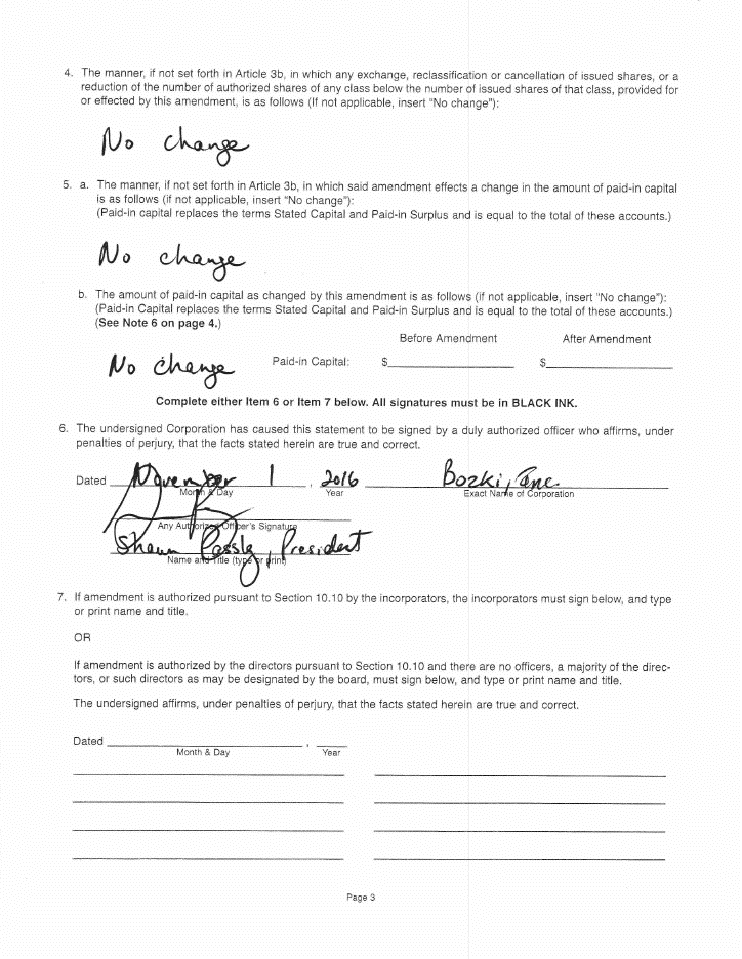 4. The manner, if not set forth in Article 3b, in which any exchange, reclassification or cancellation of issued shares, or a
reduction of the number of authorized shares of any class below the number of issued shares of that class, provided for
or effected by this amendment, is as follows (If not applicable, insert "No change"):
No change
5. a. The manner, if not set forth in Article 3b, in which said amendment effects a change in the amount of paid-in capital
is as follows (if not applicable, insert "No change"):
(Paid-in capital replaces the terms Stated Capital and Paid-in Surplus and is equal to the total of these accounts.)
No change
b. The amount of paid-in capital as changed by this amendment is as follows (if not applicable, insert "No change"):
(Paid-in Capital replaces the terms Stated Capital and Paid-in Surplus and is equal to the total of these accounts.)
(See Note 6 on page 4.)
Before Amendment After Amendment
No change Paid-in Capital: $ $
Complete either Item 6 or Item 7 below. All signatures must be in BLACK INK.
6. The undersigned Corporation has caused this statement to be signed by a duly authorized officer who affirms, under
penalties of perjury, that the facts stated herein are true and correct.
Dated November 1, 2016 Bozki, Inc
Month & Day Year Exact Name of Corporation
Any Authorized Officer's Signature
Shawn Passly, President
Name and Title (type or print)
7. If amendment is authorized pursuant to Section 10.10 by the incorporators, the incorporators must sign below, and type
or print name and title.
OR
If amendment is authorized by the directors pursuant to Section 10.10 and there are no officers, a majority of the direc-
tors, or such directors as may be designated by the board, must sign below, and type or print name and title.
The undersigned affirms, under penalties of perjury, that the facts stated herein are true and correct.
Dated ,
Month & Day Year
Page 3